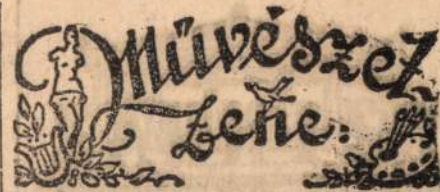 Művészet
Zene.